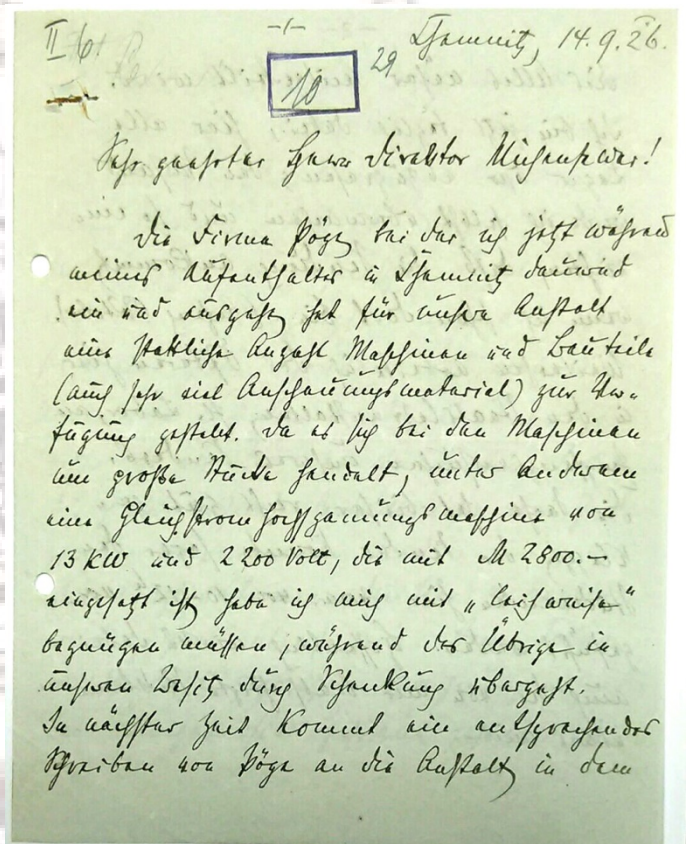 -1-
Chemnitz, 14.9.26.
29
10
Sehr geehrter Herr Direktor
Die Firma Pöge, bei der ich jetzt während
meines Aufenthaltes in Chemnitz dauernd
ein und ausgehe, hat für unsere Anstalt
eine stattliche Anzahl Maschinen und Bauteile
(auch sehr viel Anschauungsmaterial) zur Ver-
fügung gestellt. Da es sich bei den Maschinen
um große Stücke handelt, unter Anderem
eine Gleichstromhochspannungsmaschine von
13 KW und 2200 Volt, die mit M 2800.–
eingesetzt ist, habe ich mich mit „leihweise“
begnügen müssen, während das Übrige in
unseren Besitz durch Schenkung übergeht.
In nächster Zeit kommt ein entsprechendes
Schreiben von Pöge an die Anstalt, in dem